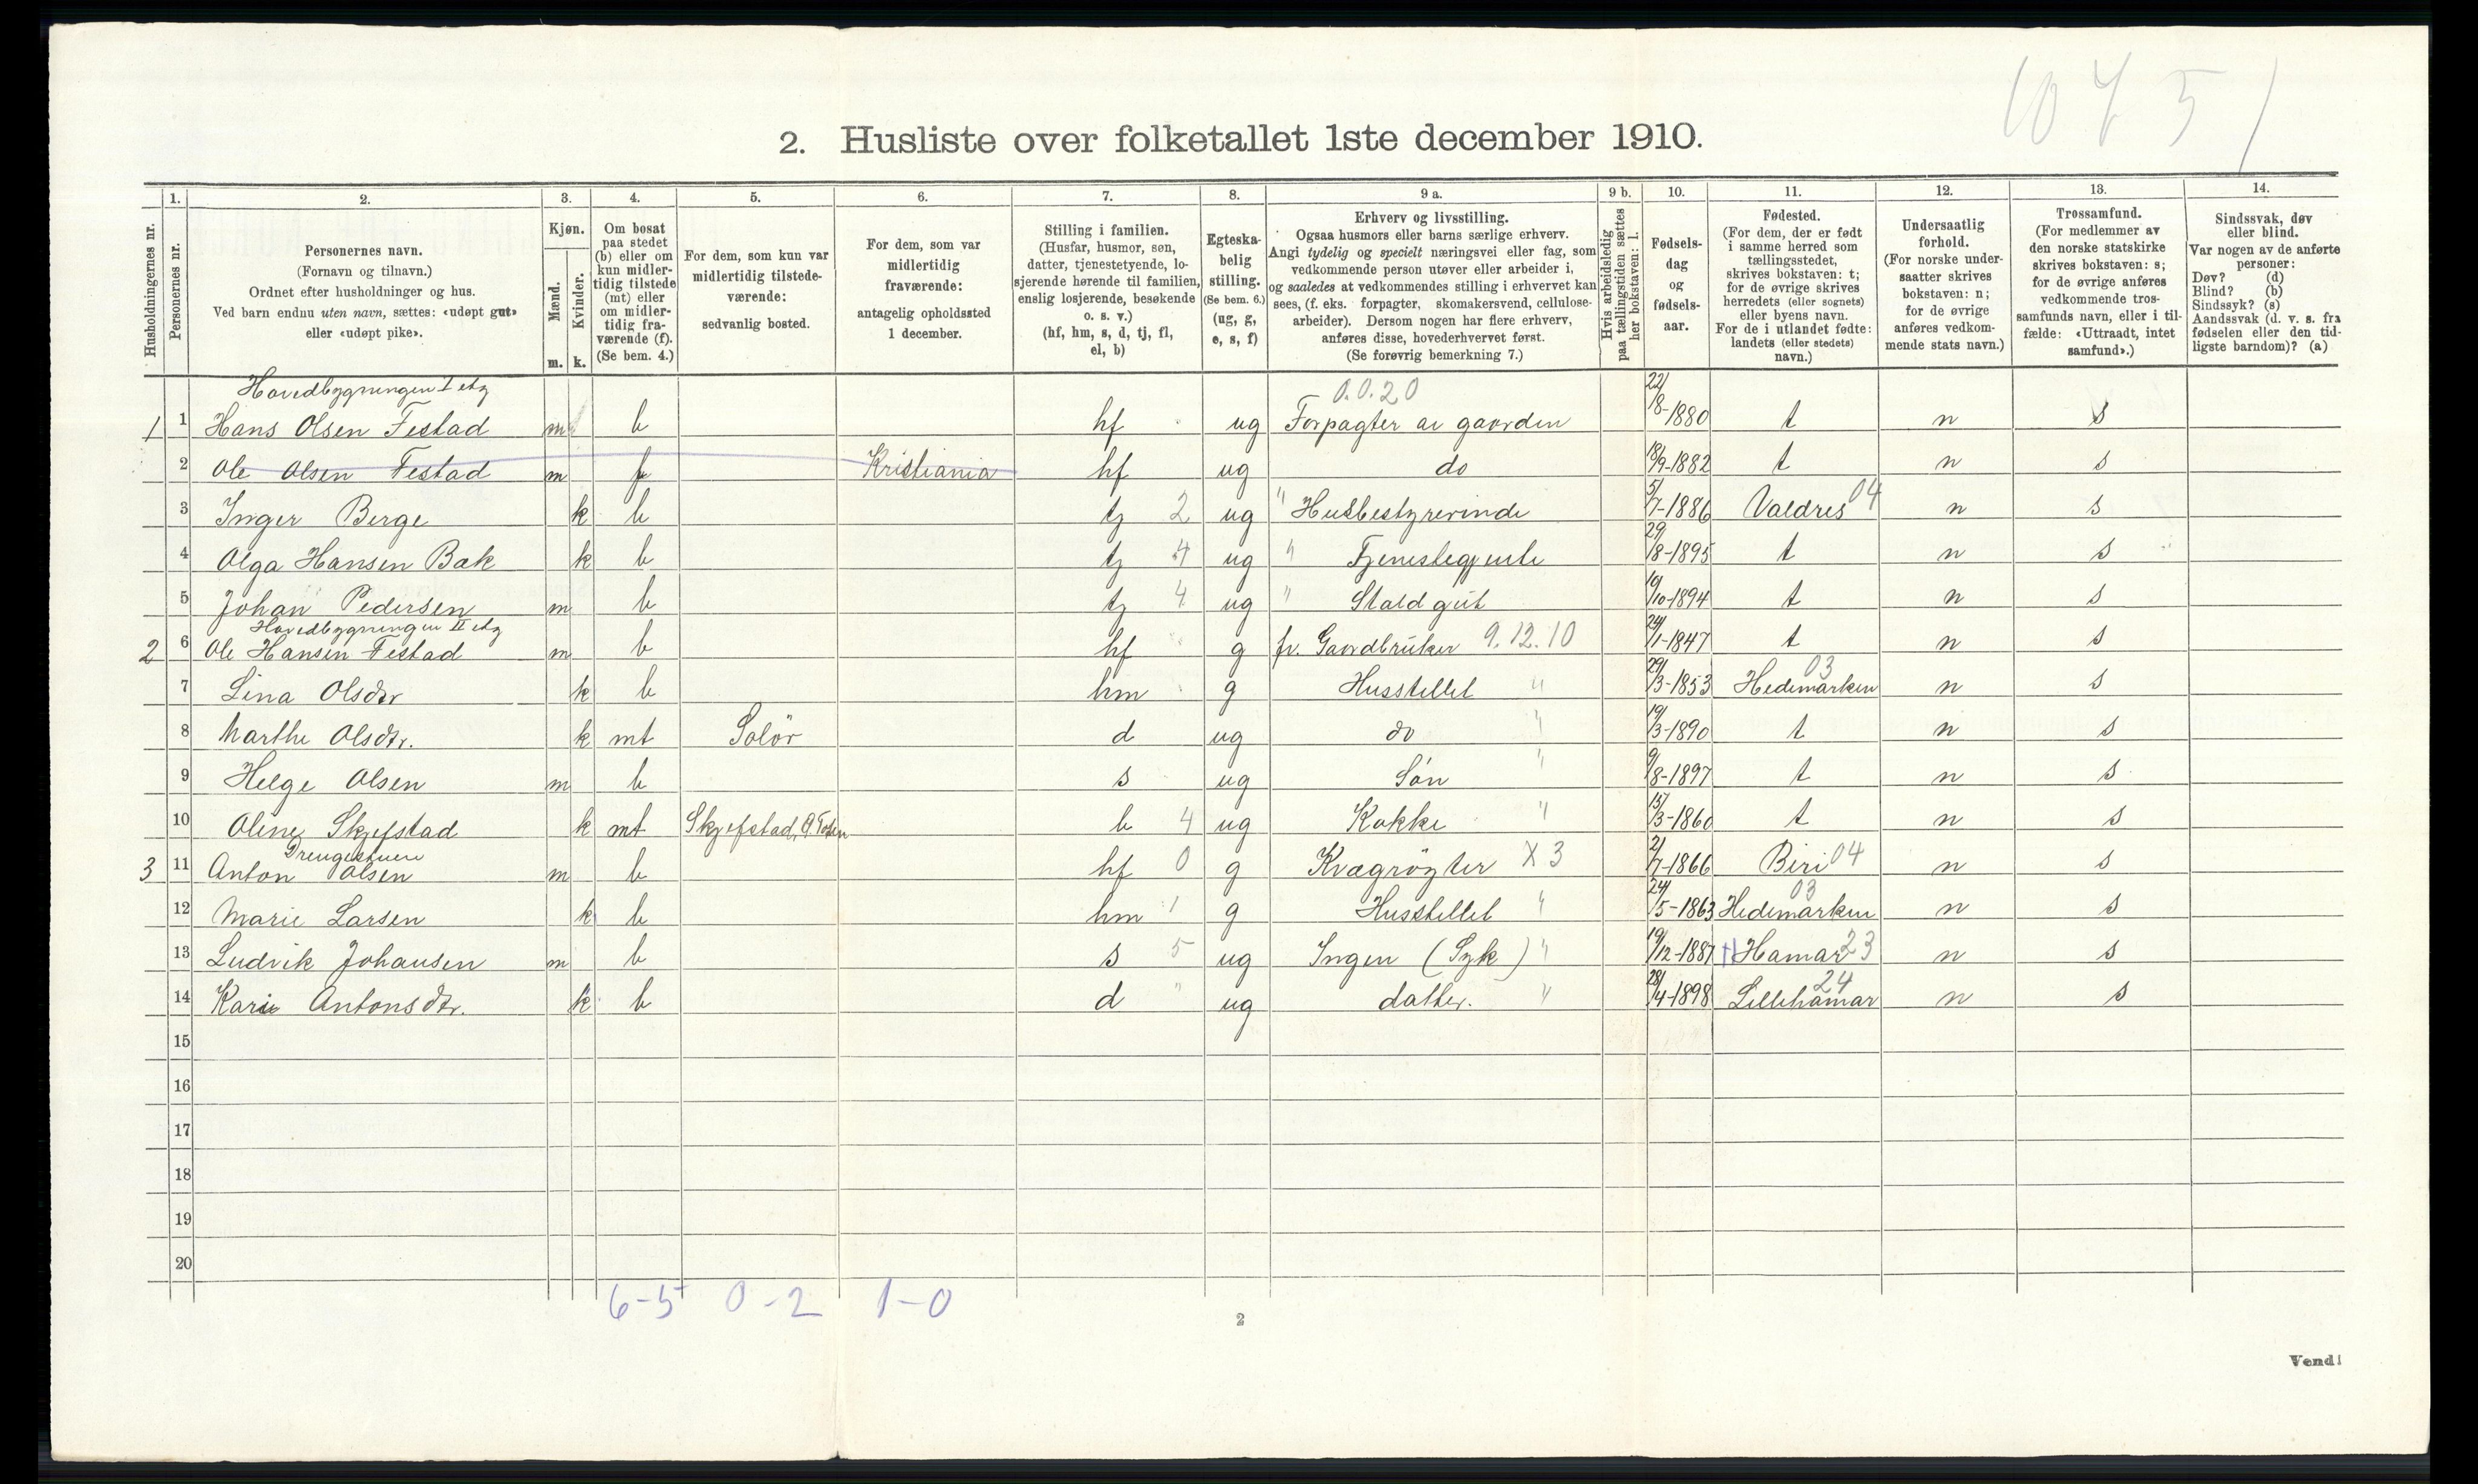 10751
2. Husliste over folketallet 1ste december 1910.
Husholdningernes nr.
1.
Personernes nr.
2.
Personernes navn.
(Fornavn og tilnavn.)
Ordnet efter husholdninger og hus.
Ved barn endnu uten navn, sættes: «udøpt gut»
eller «udøpt pike».
3.
Kjøn.
Mænd.
Kvinder.
m. k.
4.
Om bosat
paa stedet
(b) eller om
kun midler-
tidig tilstede
(mt) eller
om midler-
tidig fra-
værende (f).
(Se bem. 4.)
5.
For dem, som kun var
midlertidig tilstede-
værende:
sedvanlig bosted.
6.
For dem, som var
midlertidig
fraværende:
antagelig opholdssted
1 december.
7.
Stilling i familien.
(Husfar, husmor, søn,
datter, tjenestetyende, lo-
sjerende hørende til familien,
enslig losjerende, besøkende
o. s. v.)
(hf, hm, s, d, tj, fl,
el, b)
8.
Egteska-
belig
stilling.
(Se bem. 6.)
(ug, g,
e, s, f)
9 a.
Erhverv og livsstilling.
Ogsaa husmors eller barns særlige erhverv.
Angi tydelig og specielt næringsvei eller fag, som
vedkommende person utøver eller arbeider i,
og saaledes at vedkommendes stilling i erhvervet kan
sees, (f. eks. forpagter, skomakersvend, cellulose-
arbeider). Dersom nogen har flere erhverv,
anføres disse, hovederhvervet først.
(Se forøvrig bemerkning 7.)
9 b.
Hvis arbeidsledig
paa tællingstiden sættes
her bokstaven: l.
10.
Fødsels-
dag
og
fødsels-
aar.
11.
Fødested.
(For dem, der er født
i samme herred som
tællingsstedet,
skrives bokstaven: t;
for de øvrige skrives
herredets (eller sognets)
eller byens navn.
For de i utlandet fødte:
landets (eller stedets)
navn.)
12.
Undersaatlig
forhold.
(For norske under-
saatter skrives
bokstaven: n;
for de øvrige
anføres vedkom-
mende stats navn.)
13.
Trossamfund.
(For medlemmer av
den norske statskirke
skrives bokstaven: s;
for de øvrige anføres
vedkommende tros-
samfunds navn, eller i til-
fælde: «Uttraadt, intet
samfund».)
14.
Sindssvak, døv
eller blind.
Var nogen av de anførte
personer:
Døv? (d)
Blind? (b)
Sindssyk? (s)
Aandssvak (d. v. s. fra
fødselen eller den tid-
ligste barndom)? (a)
Hovedbygningen I etg 0.0.20
1 1 Hans Olsen Festad m b hf ug Forpagter av gaarden 22/8-1880 t n s
2 Ole Olsen Festad m f Kristiania hf ug do 18/9-1882 t n s
3 Inger Berge k b tj 2 ug " Husbestyrerinde 5/7-1886 Valdres 04 n s
4 Olga Hansen Bak k b tj 4 ug " Tjenestegjente 29/8-1895 t n s
5 Johan Pedersen m b tj 4 ug " Staldgut 10/10-1894 t n s
Hovedbygningen II etg
2 6 Ole Hansen Festad m b hf g fr. Gaardbruker 9.12.10 24/1-1847 t n s
7 Lina Olsdtr k b hm g Husstellet " 29/3-1853 Hedemarken 03 n s
8 Marthe Olsdtr. k mt Solör d ug do " 19/3-1890 t n s
9 Helge Olsen m b s ug Sön " 9/8-1897 t n s
10 Oline Skjefstad k mt Skjefstad, Ø. Toten b 4 ug Kokke " 15/3-1860 t n s
Drengestuen
3 11 Anton Olsen m b hf 0 g Kvægrögter X 3 2/7-1866 Biri 04 n s
12 Marie Larsen k b hm 1 g Husstellet " 24/5-1863 Hedemarken 03 n s
13 Ludvik Johansen m b s 5 ug Ingen (Syk) " 19/12-1887 Hamar 23 n s
14 Karie Antonsdtr. k b d " ug datter. " 28/4-1898 Lillehamar 24 n s
15
16
17
18
19
20
6-5 0-2 1-0
2
Vend!